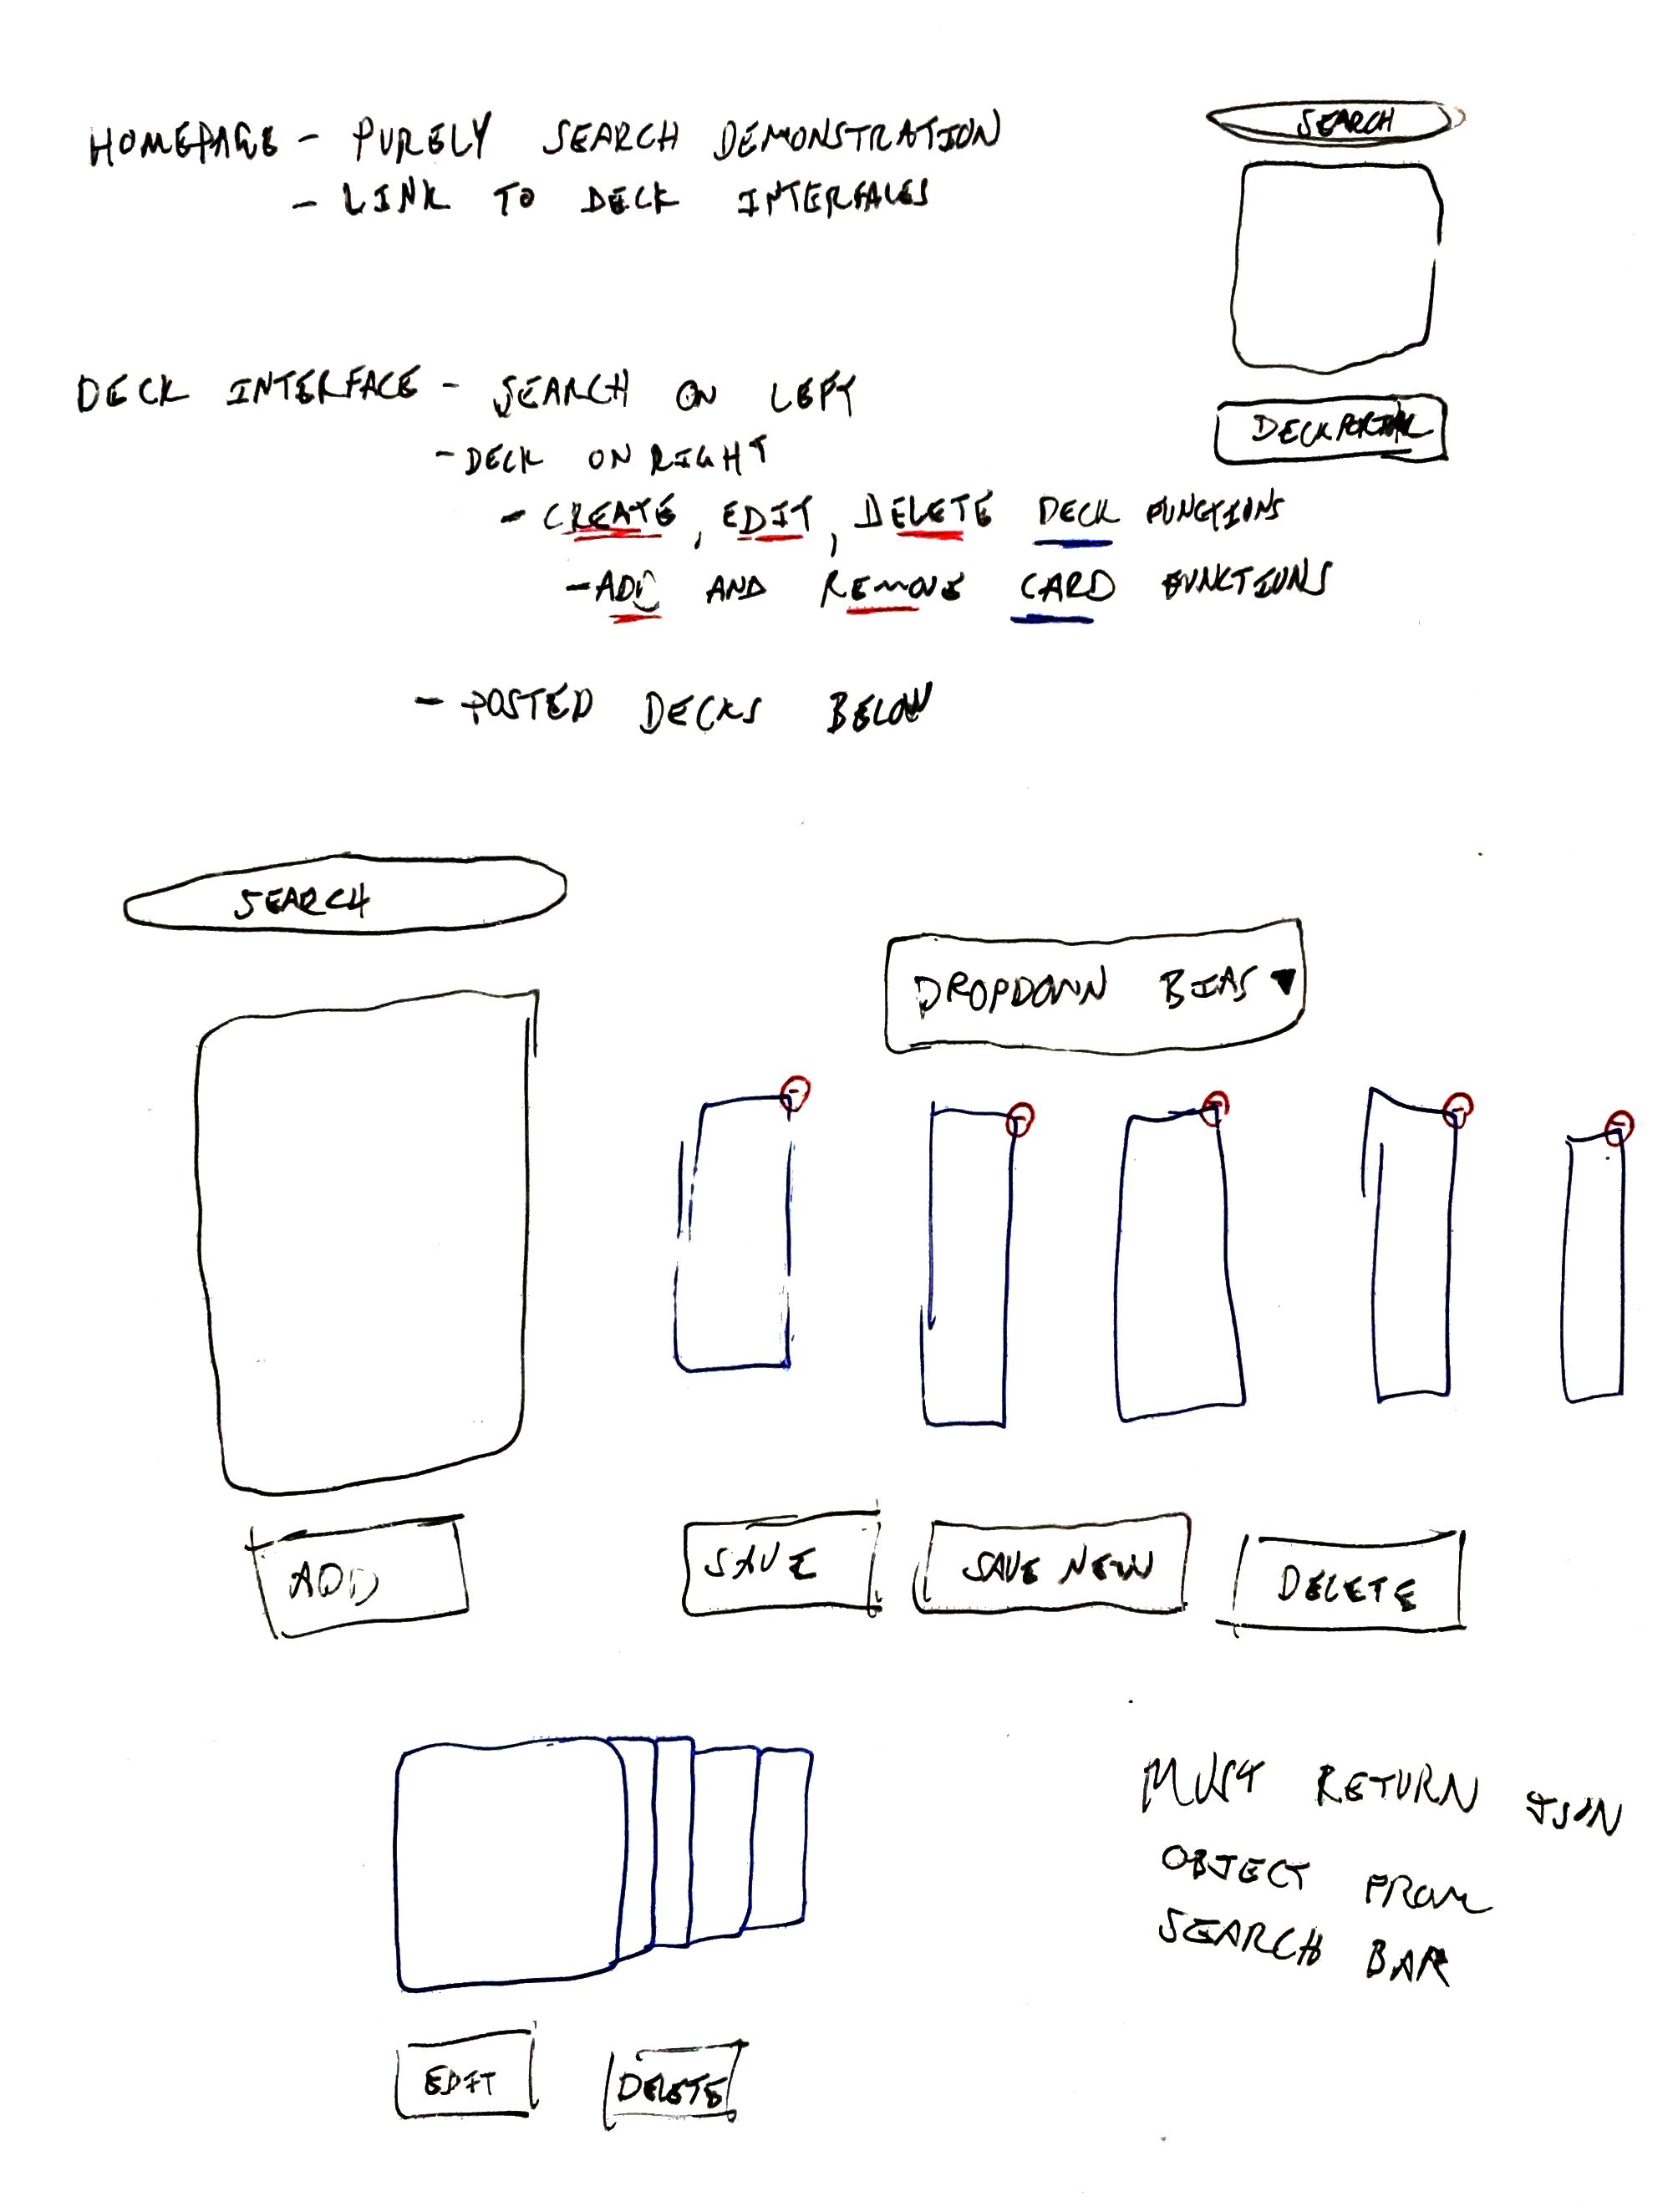 HOMEPAGE - PURELY SEARCH DEMONSTRATION
- LINK TO DECK INTERFACES
SEARCH
DECK PORTAL
DECK INTERFACE - SEARCH ON LEFT
- DECK ON RIGHT
- CREATE, EDIT, DELETE DECK FUNCTIONS
- ADD AND REMOVE CARD FUNCTIONS
- POSTED DECKS BELOW
SEARCH
DROPDOWN BIAS ▼
ADD
SAVE
SAVE NEW
DELETE
MUST RETURN JSON
OBJECT FROM
SEARCH BAR
EDIT
DELETE